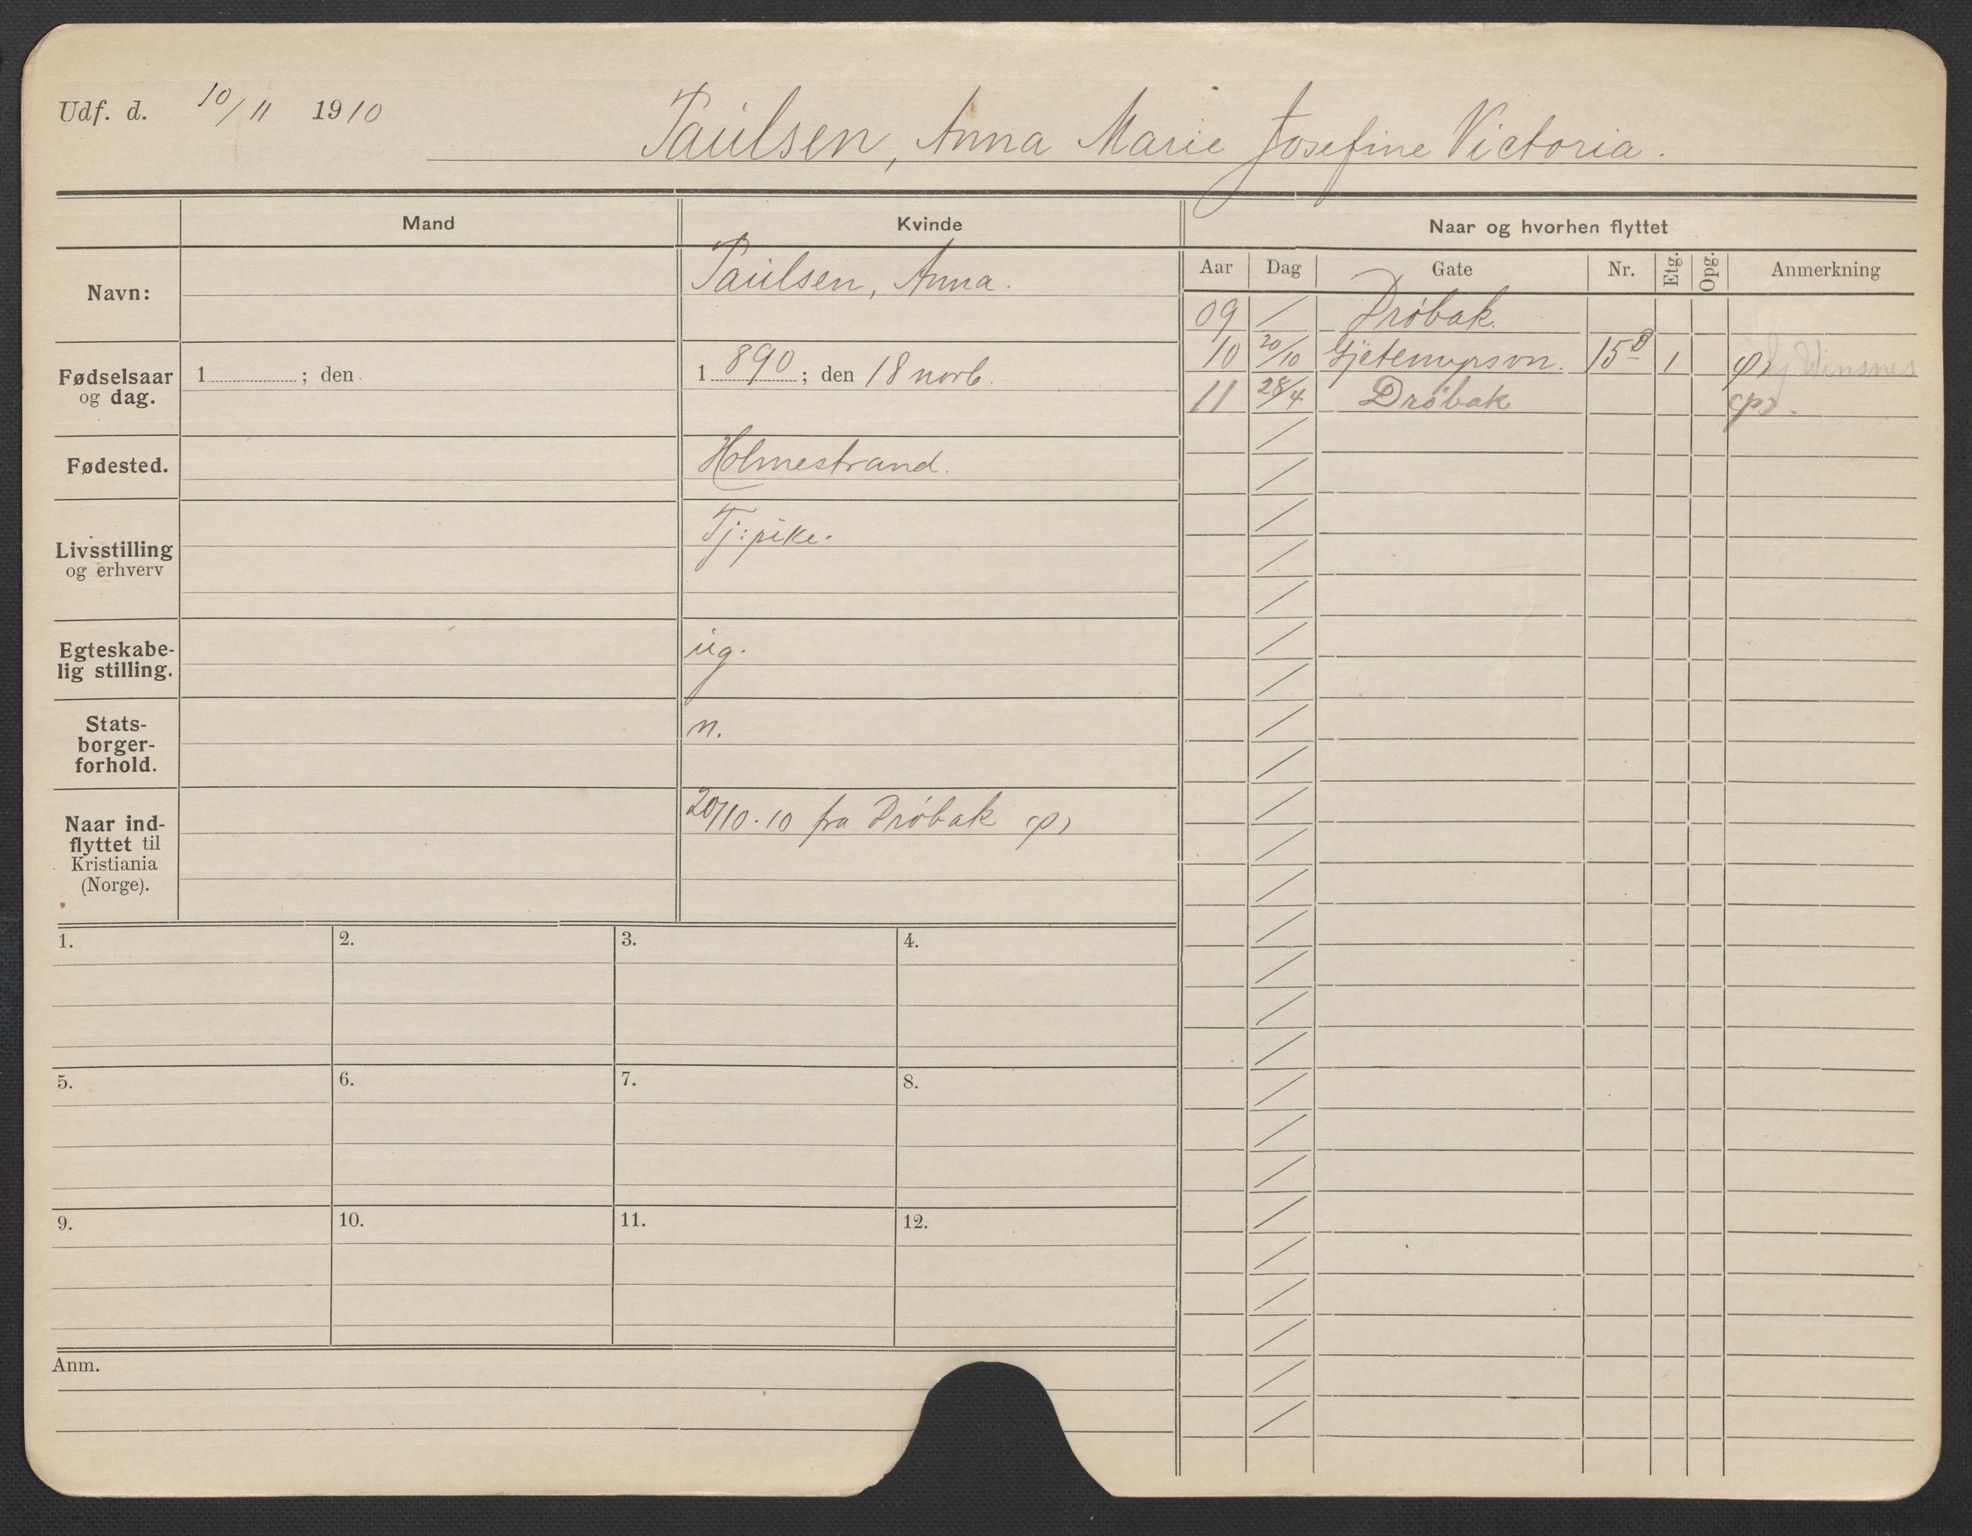 Udf. d. 10/11 1910
Paulsen, Anna Marie Josefine Victoria.
Mand Kvinde Naar og hvorhen flyttet
Aar Dag Gate Nr. Etg. Opg. Anmerkning
Navn: Paulsen, Anna.
09 / Drøbak.
10 20/10 Gjetemyrsvn. 15B 1 hj Winsnes
11 28/4 Drøbak
Fødselsaar og dag. 1 ; den 1890; den 18 novb.
Fødested. Holmestrand.
Livsstilling og erhverv Tj: pike.
Egteskabe-
lig stilling. ug.
Stats-
borger-
forhold. n.
Naar ind-
flyttet til
Kristiania
(Norge). 20/10.10 fra Drøbak
1. 2. 3. 4.
5. 6. 7. 8.
9. 10. 11. 12.
Anm.